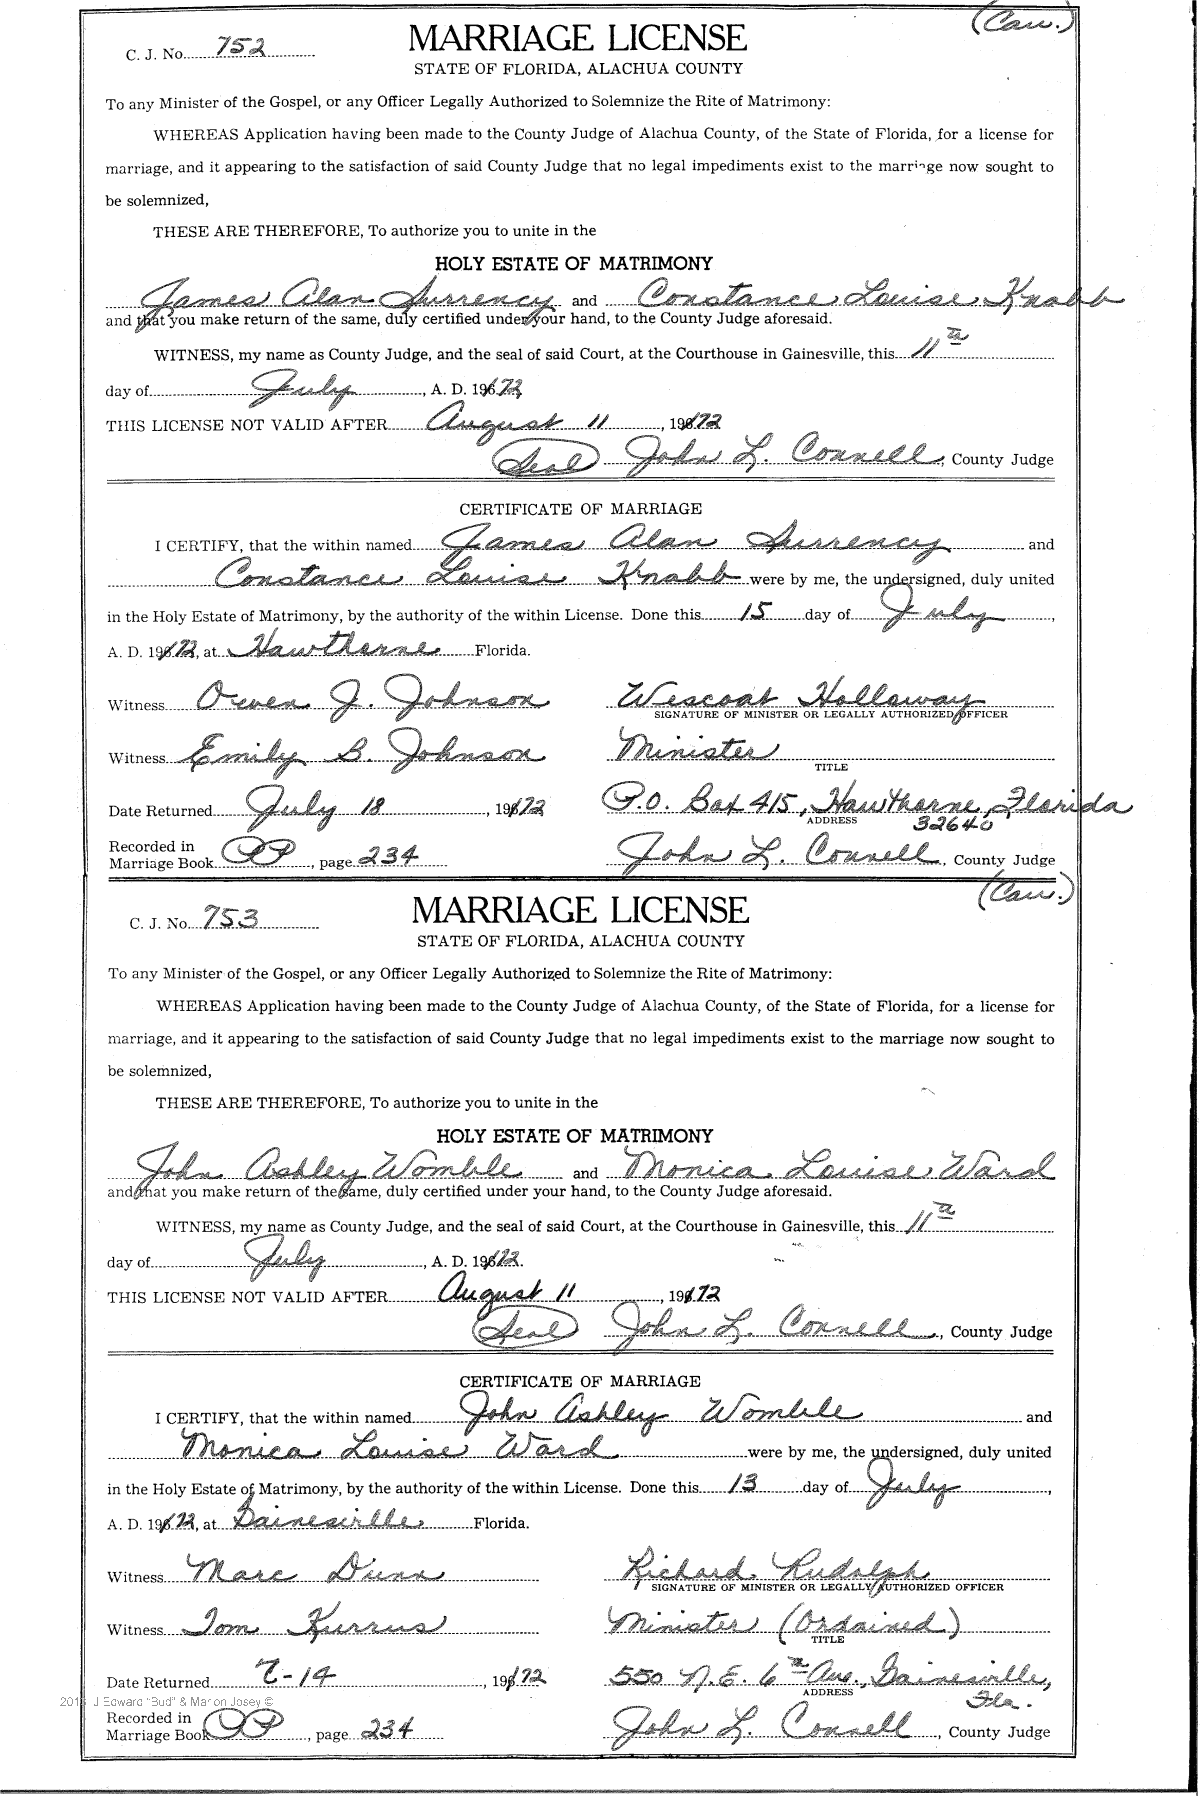 (Cau.)
C. J. No. 752
MARRIAGE LICENSE
STATE OF FLORIDA, ALACHUA COUNTY
To any Minister of the Gospel, or any Officer Legally Authorized to Solemnize the Rite of Matrimony:
WHEREAS Application having been made to the County Judge of Alachua County, of the State of Florida, for a license for
marriage, and it appearing to the satisfaction of said County Judge that no legal impediments exist to the marriage now sought to
be solemnized,
THESE ARE THEREFORE, To authorize you to unite in the
HOLY ESTATE OF MATRIMONY
James Alan Surrency and Constance Louise Knabb
and that you make return of the same, duly certified under your hand, to the County Judge aforesaid.
WITNESS, my name as County Judge, and the seal of said Court, at the Courthouse in Gainesville, this 11th
day of July, A. D. 1972
THIS LICENSE NOT VALID AFTER August 11, 1972
(Seal) John L. Connell, County Judge
CERTIFICATE OF MARRIAGE
I CERTIFY, that the within named James Alan Surrency and
Constance Louise Knabb were by me, the undersigned, duly united
in the Holy Estate of Matrimony, by the authority of the within License. Done this 15 day of July,
A. D. 1972, at Hawthorne Florida.
Witness Owen J. Johnson Wescoat Holloway
SIGNATURE OF MINISTER OR LEGALLY AUTHORIZED OFFICER
Witness Emily B. Johnson Minister
TITLE
Date Returned July 18, 1972 P.O. Box 415, Hawthorne, Florida
ADDRESS 32640
Recorded in
Marriage Book PP, page 234 John L. Connell, County Judge
(Cau.)
C. J. No. 753
MARRIAGE LICENSE
STATE OF FLORIDA, ALACHUA COUNTY
To any Minister of the Gospel, or any Officer Legally Authorized to Solemnize the Rite of Matrimony:
WHEREAS Application having been made to the County Judge of Alachua County, of the State of Florida, for a license for
marriage, and it appearing to the satisfaction of said County Judge that no legal impediments exist to the marriage now sought to
be solemnized,
THESE ARE THEREFORE, To authorize you to unite in the
HOLY ESTATE OF MATRIMONY
John Ashley Womble and Monica Louise Ward
and that you make return of the same, duly certified under your hand, to the County Judge aforesaid.
WITNESS, my name as County Judge, and the seal of said Court, at the Courthouse in Gainesville, this 11th
day of July, A. D. 1972.
THIS LICENSE NOT VALID AFTER August 11, 1972
(Seal) John L. Connell, County Judge
CERTIFICATE OF MARRIAGE
I CERTIFY, that the within named John Ashley Womble and
Monica Louise Ward were by me, the undersigned, duly united
in the Holy Estate of Matrimony, by the authority of the within License. Done this 13 day of July,
A. D. 1972, at Gainesville Florida.
Witness Marc Dunn Richard Rudolph
SIGNATURE OF MINISTER OR LEGALLY AUTHORIZED OFFICER
Witness Tom Kurrus Minister (Ordained)
TITLE
Date Returned 7-14, 1972 550 N.E. 6th Ave. Gainesville,
ADDRESS Fla.
J Edward "Bud" & Marion Josey ©
Recorded in
Marriage Book PP, page 234 John L. Connell, County Judge